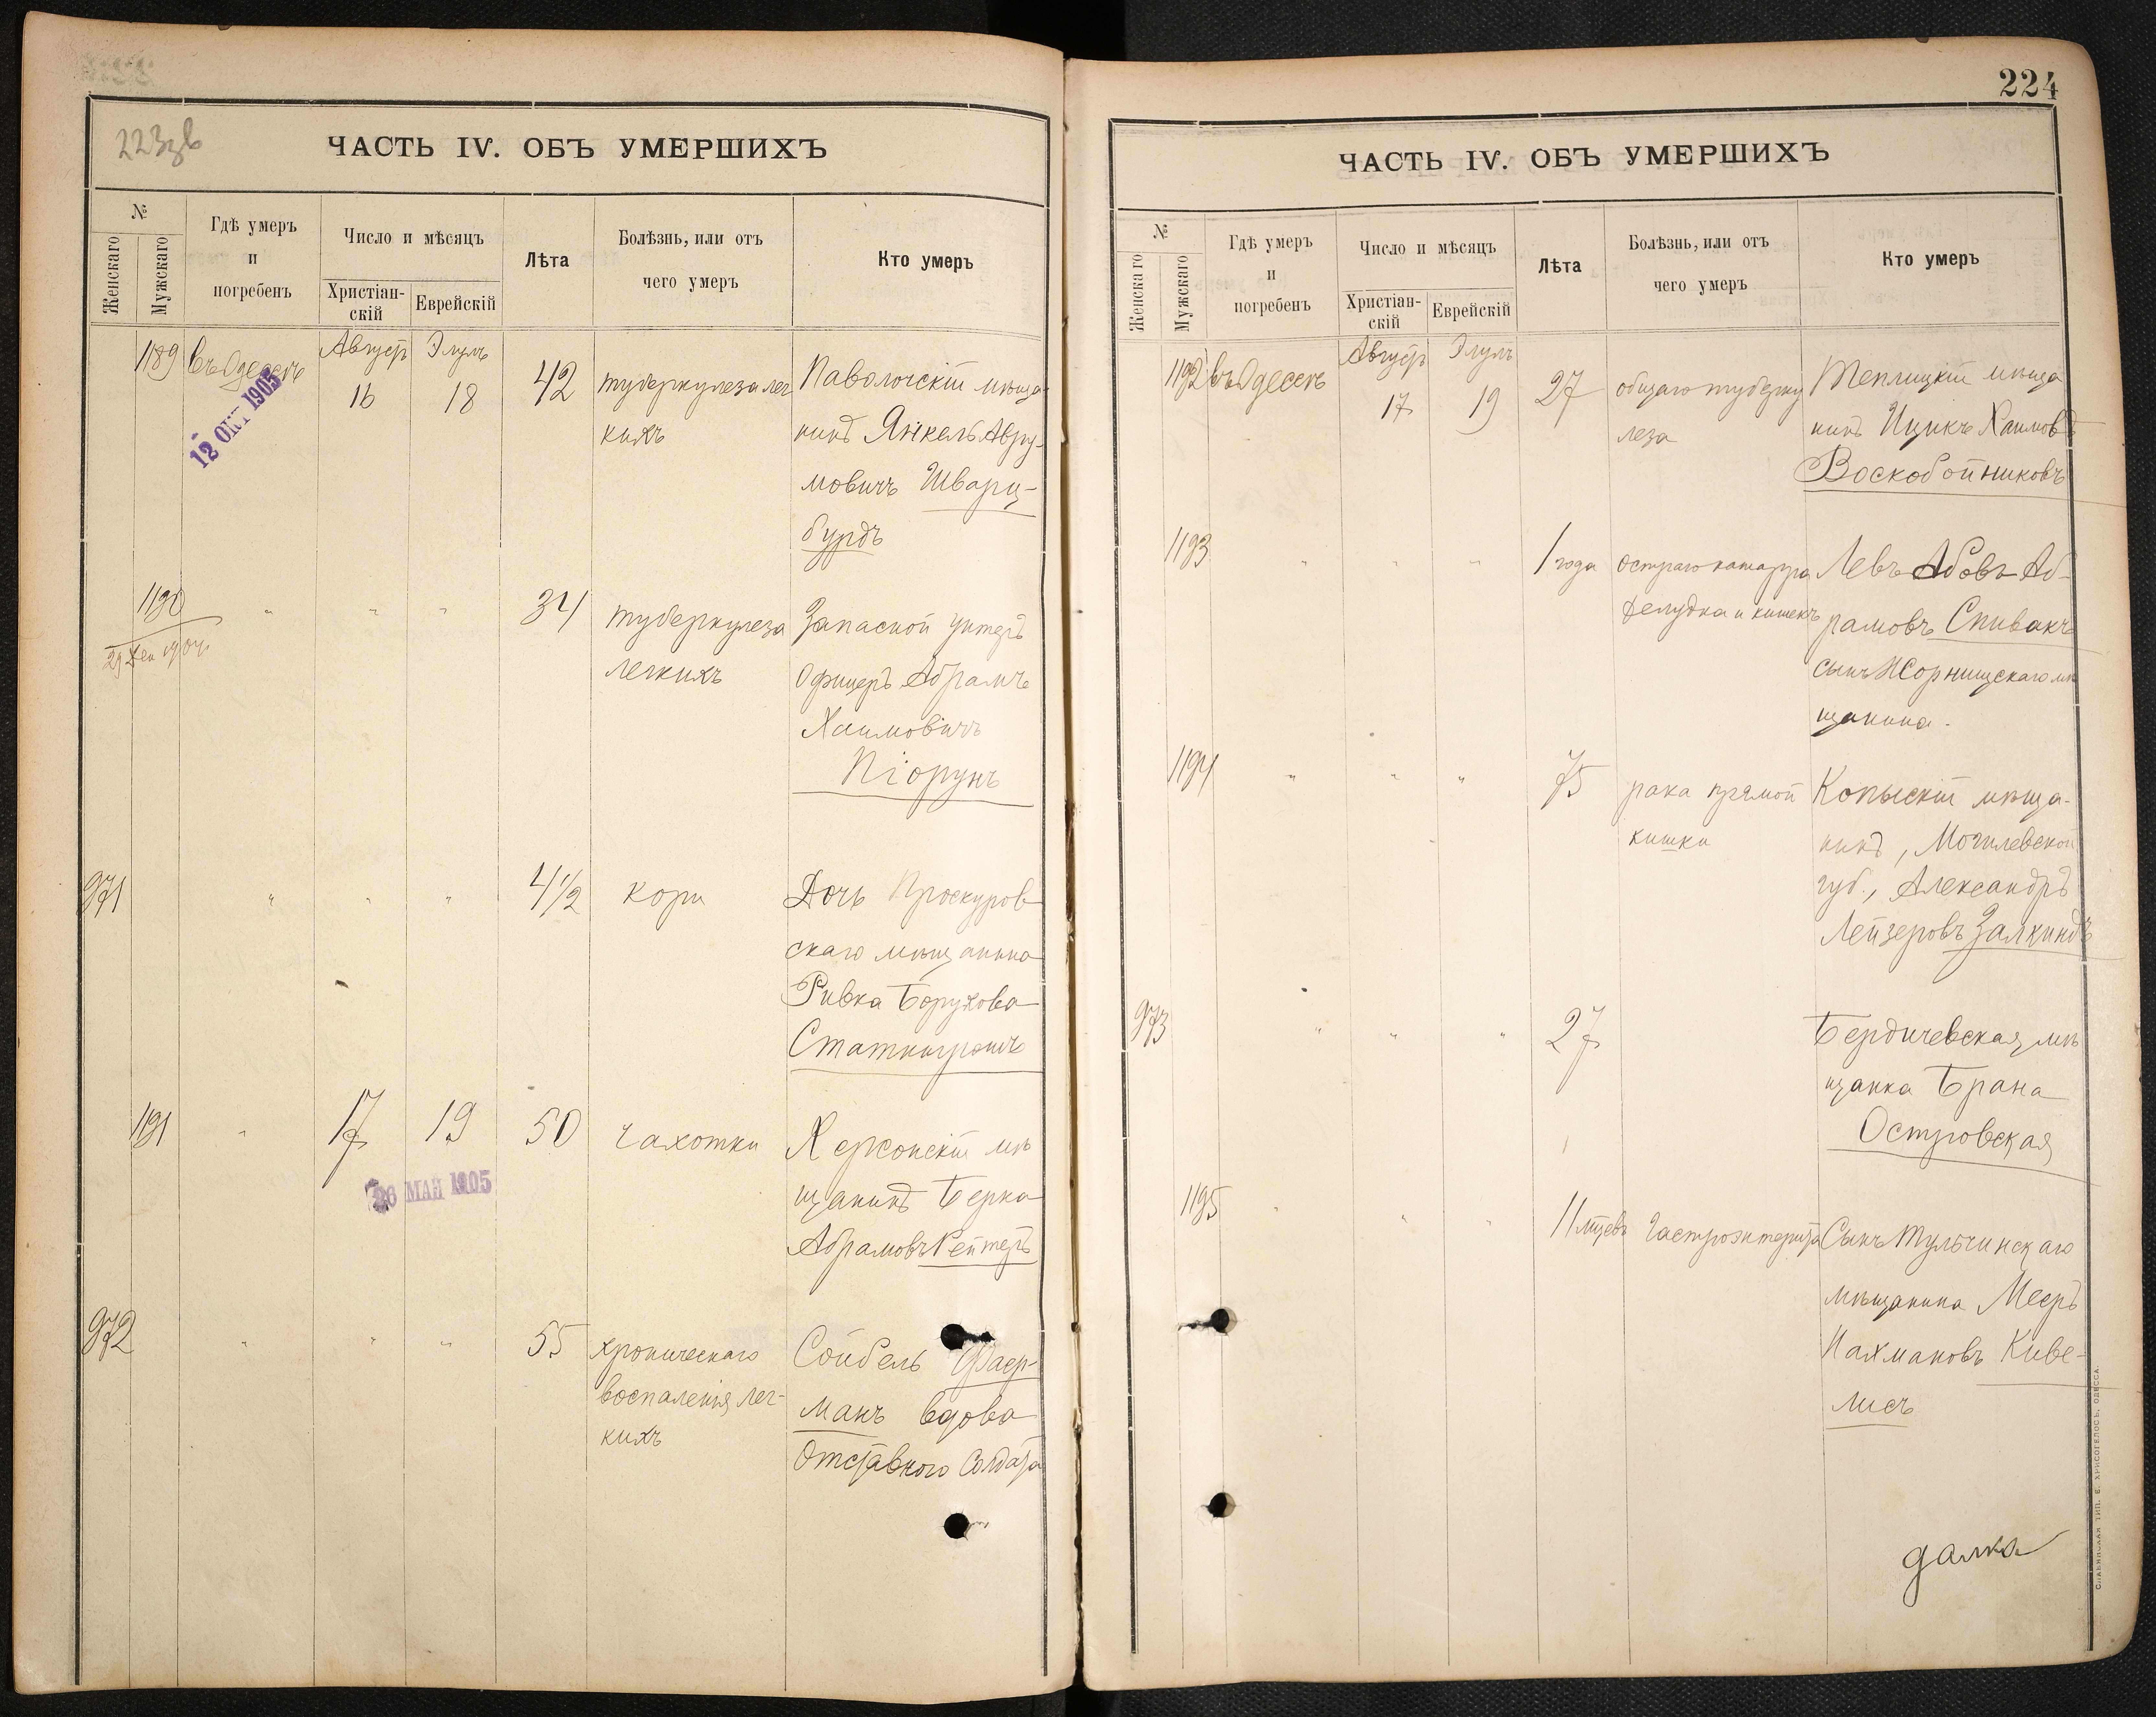 223зв
ЧАСТЬ IV. ОБЪ УМЕРШИХЪ
№
Женскаго
Мужскаго
Гдѣ умеръ
и
погребенъ
Число и мѣсяцъ
Христіан-
скій
Еврейскій
Лѣта
Болѣзнь, или отъ
чего умеръ
Кто умеръ
1189 въ Одессѣ Августъ 16 Элулъ 18 42 туберкулеза лег Паволочскій мѣща-
кихъ нинъ Янкель Авру-
мовичъ Шварц-
бурдъ
12 ОКТ 1905
1190 " " " 34 туберкулеза Запасной унтеръ
29 Дек 1904 легкихъ офицеръ Абрамъ
Хаимовичъ
Піорунъ
971 " " " 4 1/2 кори Дочь Проскуров
скаго мѣщанина
Ривка Борухова
1191 " 17 19 50 чахотки Херсонскій мѣ
щанинъ Берка
Абрамовъ Рейтеръ
26 МАЙ 1905
972 " " " 55 хроническаго Сойбель Фаер-
воспаленія лег- манъ вдова
кихъ отставного солдата
224
ЧАСТЬ IV. ОБЪ УМЕРШИХЪ
№
Женскаго
Мужскаго
Гдѣ умеръ
и
погребенъ
Число и мѣсяцъ
Христіан-
скій
Еврейскій
Лѣта
Болѣзнь, или отъ
чего умеръ
Кто умеръ
1192 въ Одессѣ Августъ 17 Элулъ 19 27 общаго туберку Теплицкій мѣща
леза нинъ Ицикъ Хаимовъ
Воскобойниковъ
1193 " " " 1 года остраго катарра Левъ Абовъ Аб-
желудка и кишекъ рамовъ Спивакъ
сынъ Жорнищскаго мѣ
щанина.
1194 " " " 75 рака прямой Копыскій мѣща-
кишки нинъ, Могилевской
губ., Александръ
Лейзеровъ Залкиндъ
973 " " " 27 Бердичевская мѣ
щанка Брана
Островская
1195 " " " 11 мѣцевъ Гастроэнтерита Сынъ Тульчинскаго
мѣщанина Мееръ
Нахмановъ Киве-
лисъ
СЛАВЯНСКАЯ ТИП. Е. ХРИСОГЕЛОСЪ, ОДЕССА.